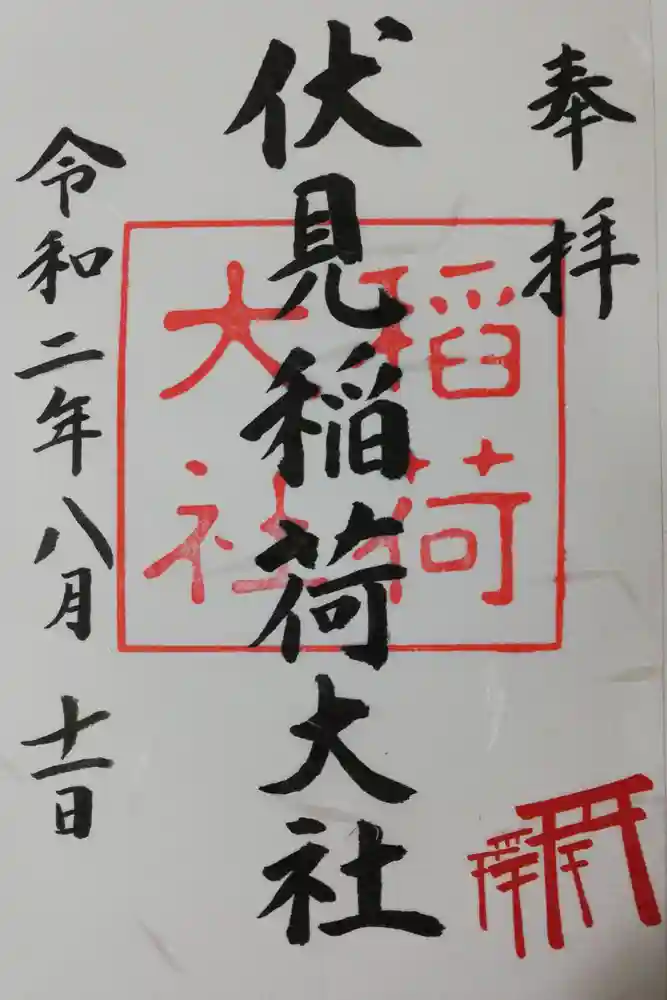 奉拝
伏見稲荷大社
稲荷
大社
令和二年八月十一日